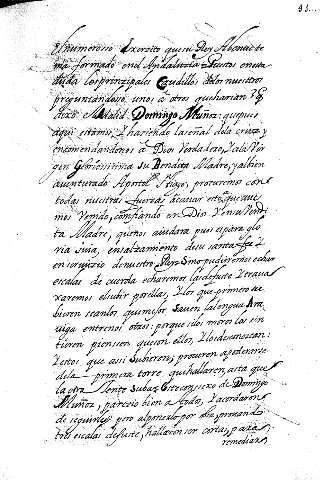 el numeroso Exercito que su Rey Abenut te
nia formado en el Andalucia. Puestos en esta
duda los principales Caudillos de los nuestros
preguntandose, unos a otros que harian?
dixo el Adalid. Domingo Muñoz: pues que
aqui estamos, y haciendo la señal de la cruz, y
encomendandonos a Dios Verdadero, y a la Vir
gen Gloriosissima su Bendita Madre, y al bien
aventurado Apostol Stiago, procuremos con
todas nuestras fuerzas acavar esto, que ave
mos Venido, confiando en Dios y en su Vendi
ta Madre, que nos ayudara pues es para glo
ria suia, ensalzamiento de su santa fee y
en servizio de nuestro Rey. Si no pudieremos echar
escalas de cuerda echaremos las de fuste y trava
xaremos el subir por ellas, y los que primero su
bieren seanlos que mejor saven la lengua Ara
viga entre nos otros: porque si los moros los sin
tieren piensen que son ellos, y los desconozcan:
y estos que assi subieren, procuren apoderarse
de la primera torre que hallaren, asta que
la otra Gente suba. Este consexo de Domingo
Muñoz, parecio bien a todos, y acordaron
de seguirle; pero al ponerlo por obra, provando
tres escalas de fuste, hallaron ser cortas, para
remediar